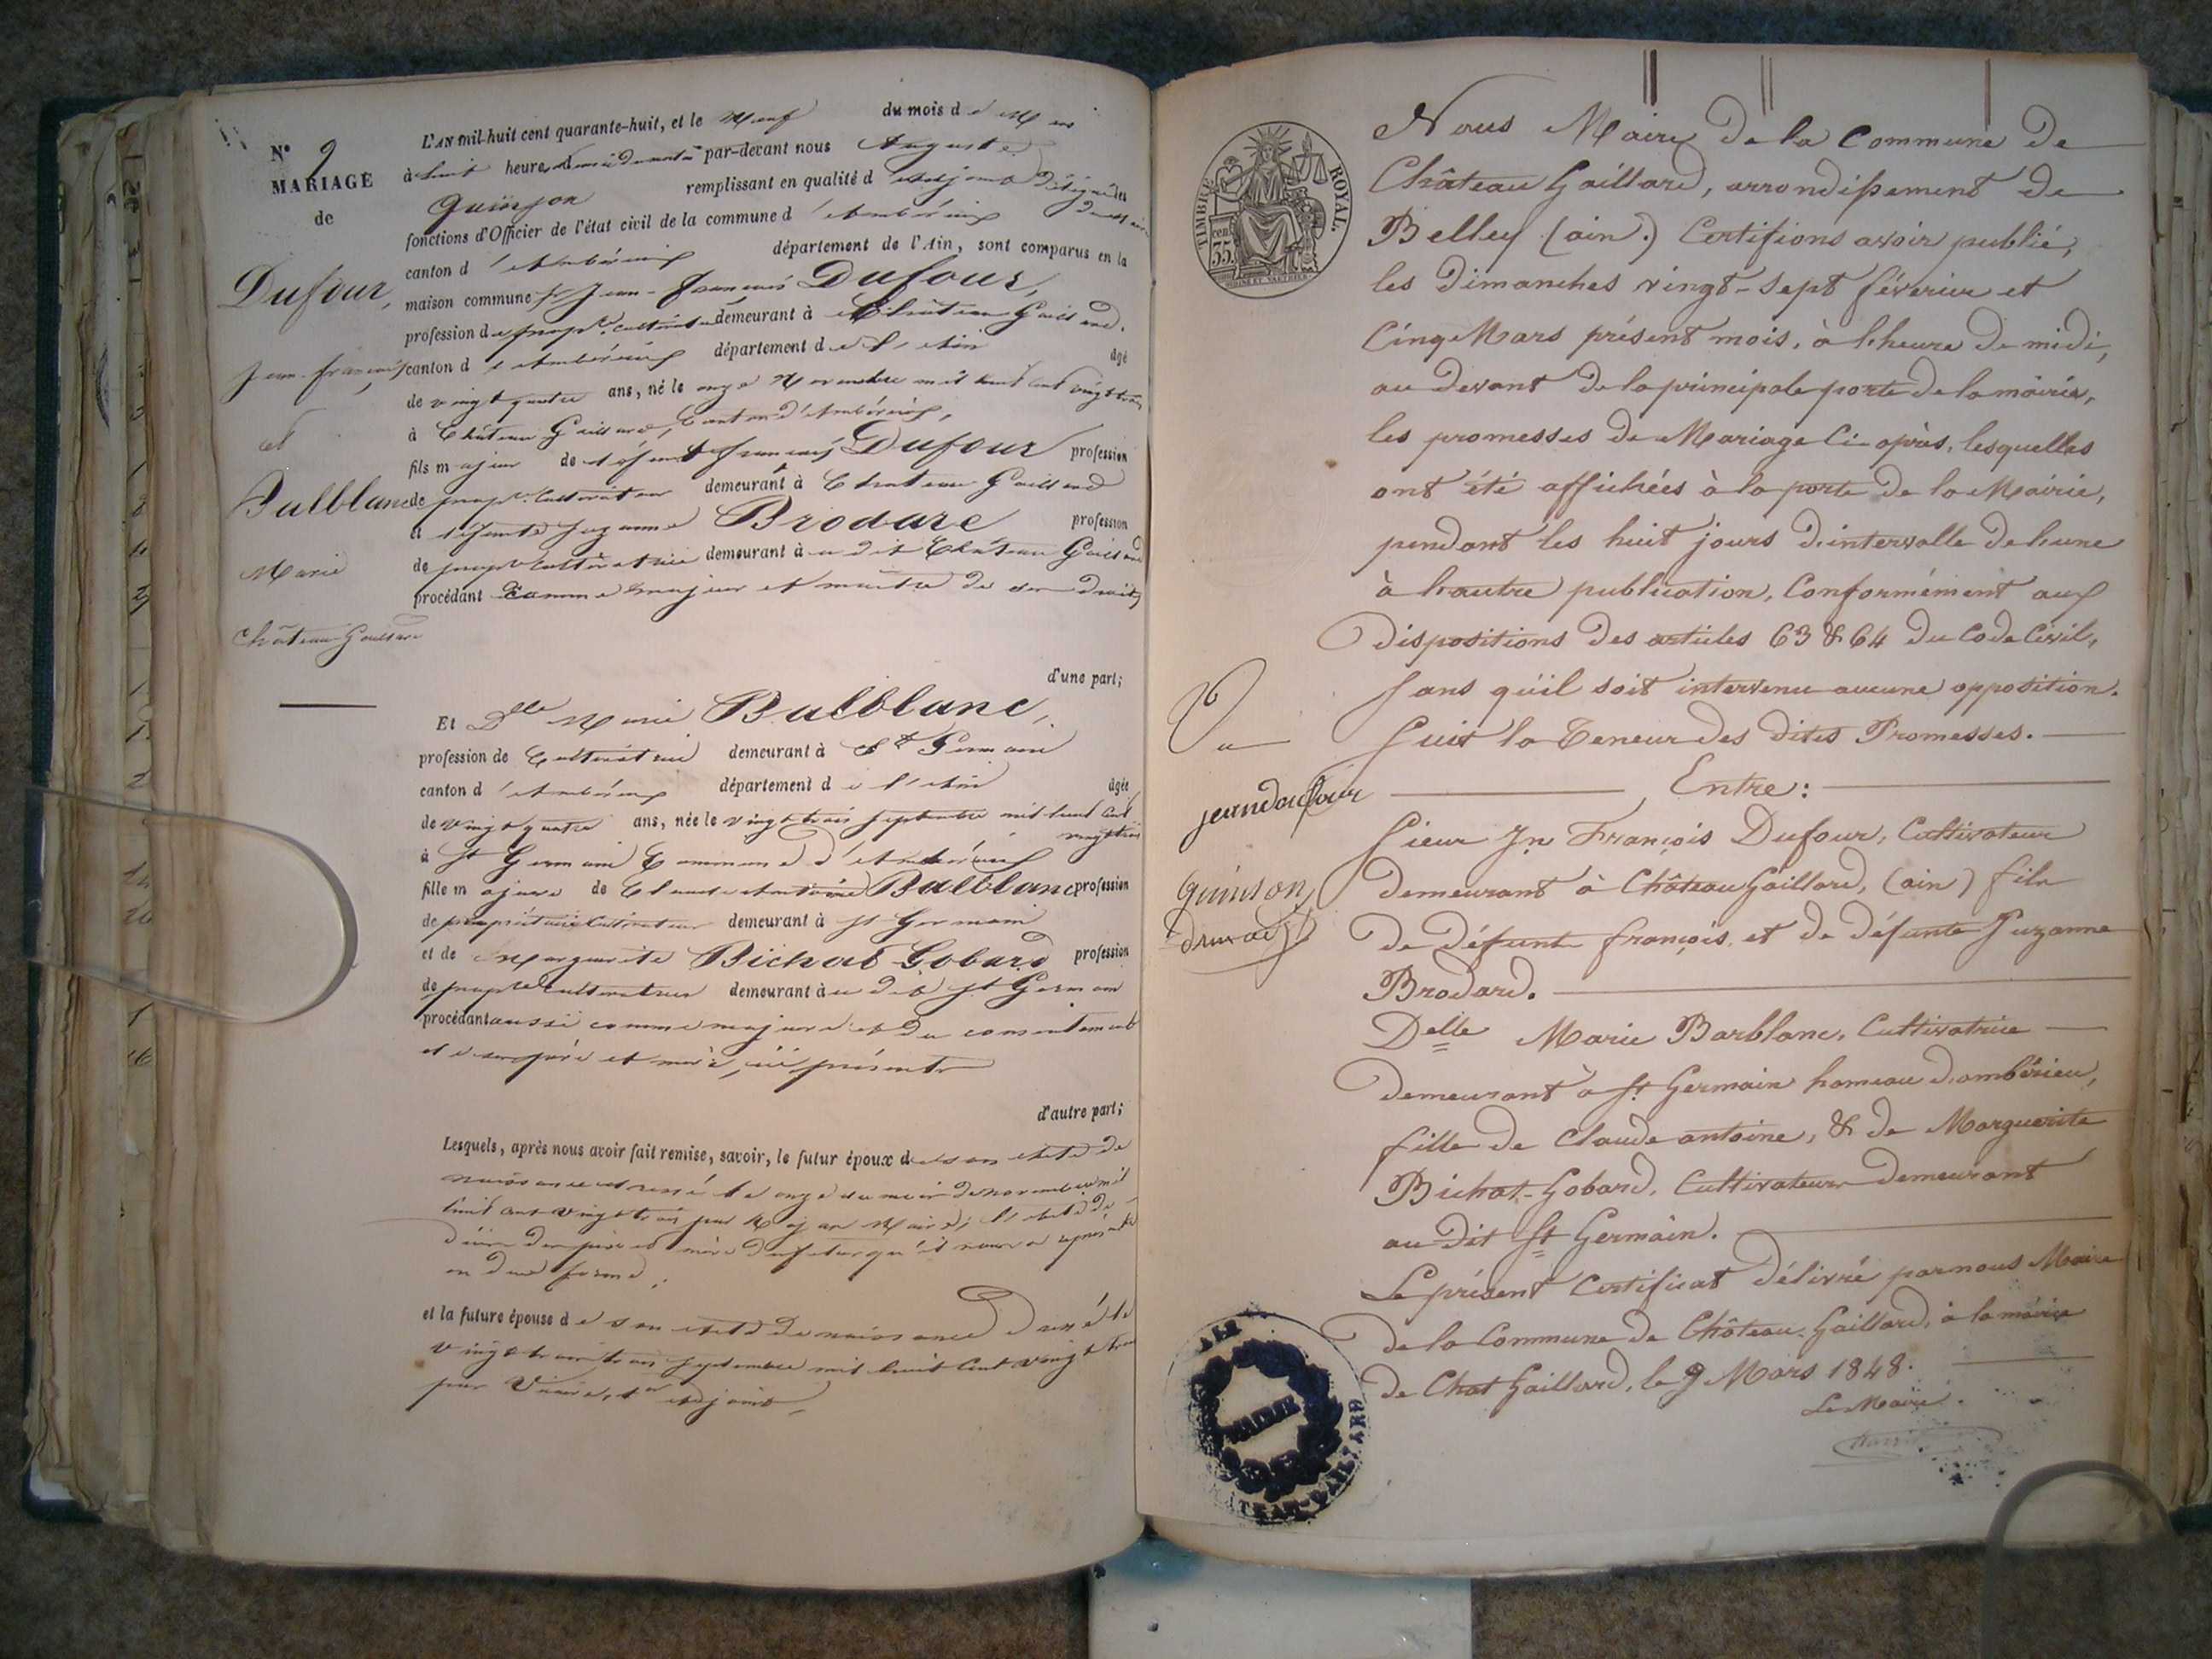 N° 9
MARIAGE
de
Dufour,
Jean-françois
et
Balblanc
Marie
Château-Gaillard
L'AN mil-huit cent quarante-huit, et le neuf du mois de Mars
à huit heures par-devant nous Auguste
Quinson remplissant en qualité d'adjoint délégué les
fonctions d'Officier de l'état civil de la commune d'Ambérieux
canton d'Ambérieux département de l'Ain, sont comparus en la
maison commune Sr Jean-François Dufour,
profession de propre. cultivateur demeurant à Château Gaillard.
canton d'Ambérieux département de l'Ain âgé
de vingt quatre ans, né le onze Novembre mil huit cent vingt trois
à Château Gaillard, Canton d'Ambérieux,
fils majeur de défunt françois Dufour profession
de propre. Cultivateur demeurant à Château Gaillard
et défunte Suzanne Brodare profession
de propre Cultivatrice demeurant à u dit Château Gaillard
procédant comme majeur et maître de ses droits
d'une part;
Et Dlle Marie Balblanc,
profession de Cultivatrice demeurant à St Germain
canton d'Ambérieux département de l'Ain âgée
de vingt quatre ans, née le vingt trois Septembre mil huit cent
vingt trois
à St Germain Commune d'Ambérieux
fille majeure de Claude Antoine Balblanc profession
de propriétaire Cultivateur demeurant à St Germain
et de Marguerite Bichat Gobard profession
de propre cultivatrice demeurant à u dit St Germain
procédant aussi comme majeure et du consentement
de ses père et mère, ici présents
d'autre part;
Lesquels, après nous avoir fait remise, savoir, le futur époux de son Acte de
naissance dressé le onze du mois de novembre mil
huit cent vingt trois par Maire; l'Acte de
décès des père et mère du futur qu'il nous a représenté
en due forme.
et la future épouse de son Acte de naissance dressé le
vingt trois Septembre mil huit cent vingt trois
par adjoint,
TIMBRE ROYAL.
35 cent
Nous Maire de la Commune de
Château Gaillard, arrondissement de
Belley (ain.) Certifions avoir publié,
les dimanches vingt-sept féverier et
Cinq Mars présent mois, à l'heure de midi,
au devant de la principale porte de la mairie,
les promesses de Mariage Ci-après, lesquelles
ont été affichées à la porte de la Mairie,
pendant les huit jours d'intervalle de l'une
à l'autre publication, Conformément aux
dispositions des articles 63 & 64 du Code Civil,
Sans qu'il soit intervenu aucune opposition.
Suit la Teneur des dites Promesses.
Entre:
Sieur Jn François Dufour, Cultivateur
demeurant à Château Gaillard, (ain) fils
de défunt françois et de défunte Suzanne
Brodard.
Delle Marie Barblanc, Cultivatrice
demeurant à St Germain hameau d'ambérieu,
fille de Claude antoine, & de Marguerite
Bichat-Gobard, Cultivateurs demeurant
au dit St Germain.
Le présent Certificat délivré par nous Maire
de la Commune de Château-Gaillard, à la mairie
de Chat Gaillard, le 9 Mars 1848.
Le Maire.
quinson
MAIRIE
CHATEAU-GAILLARD